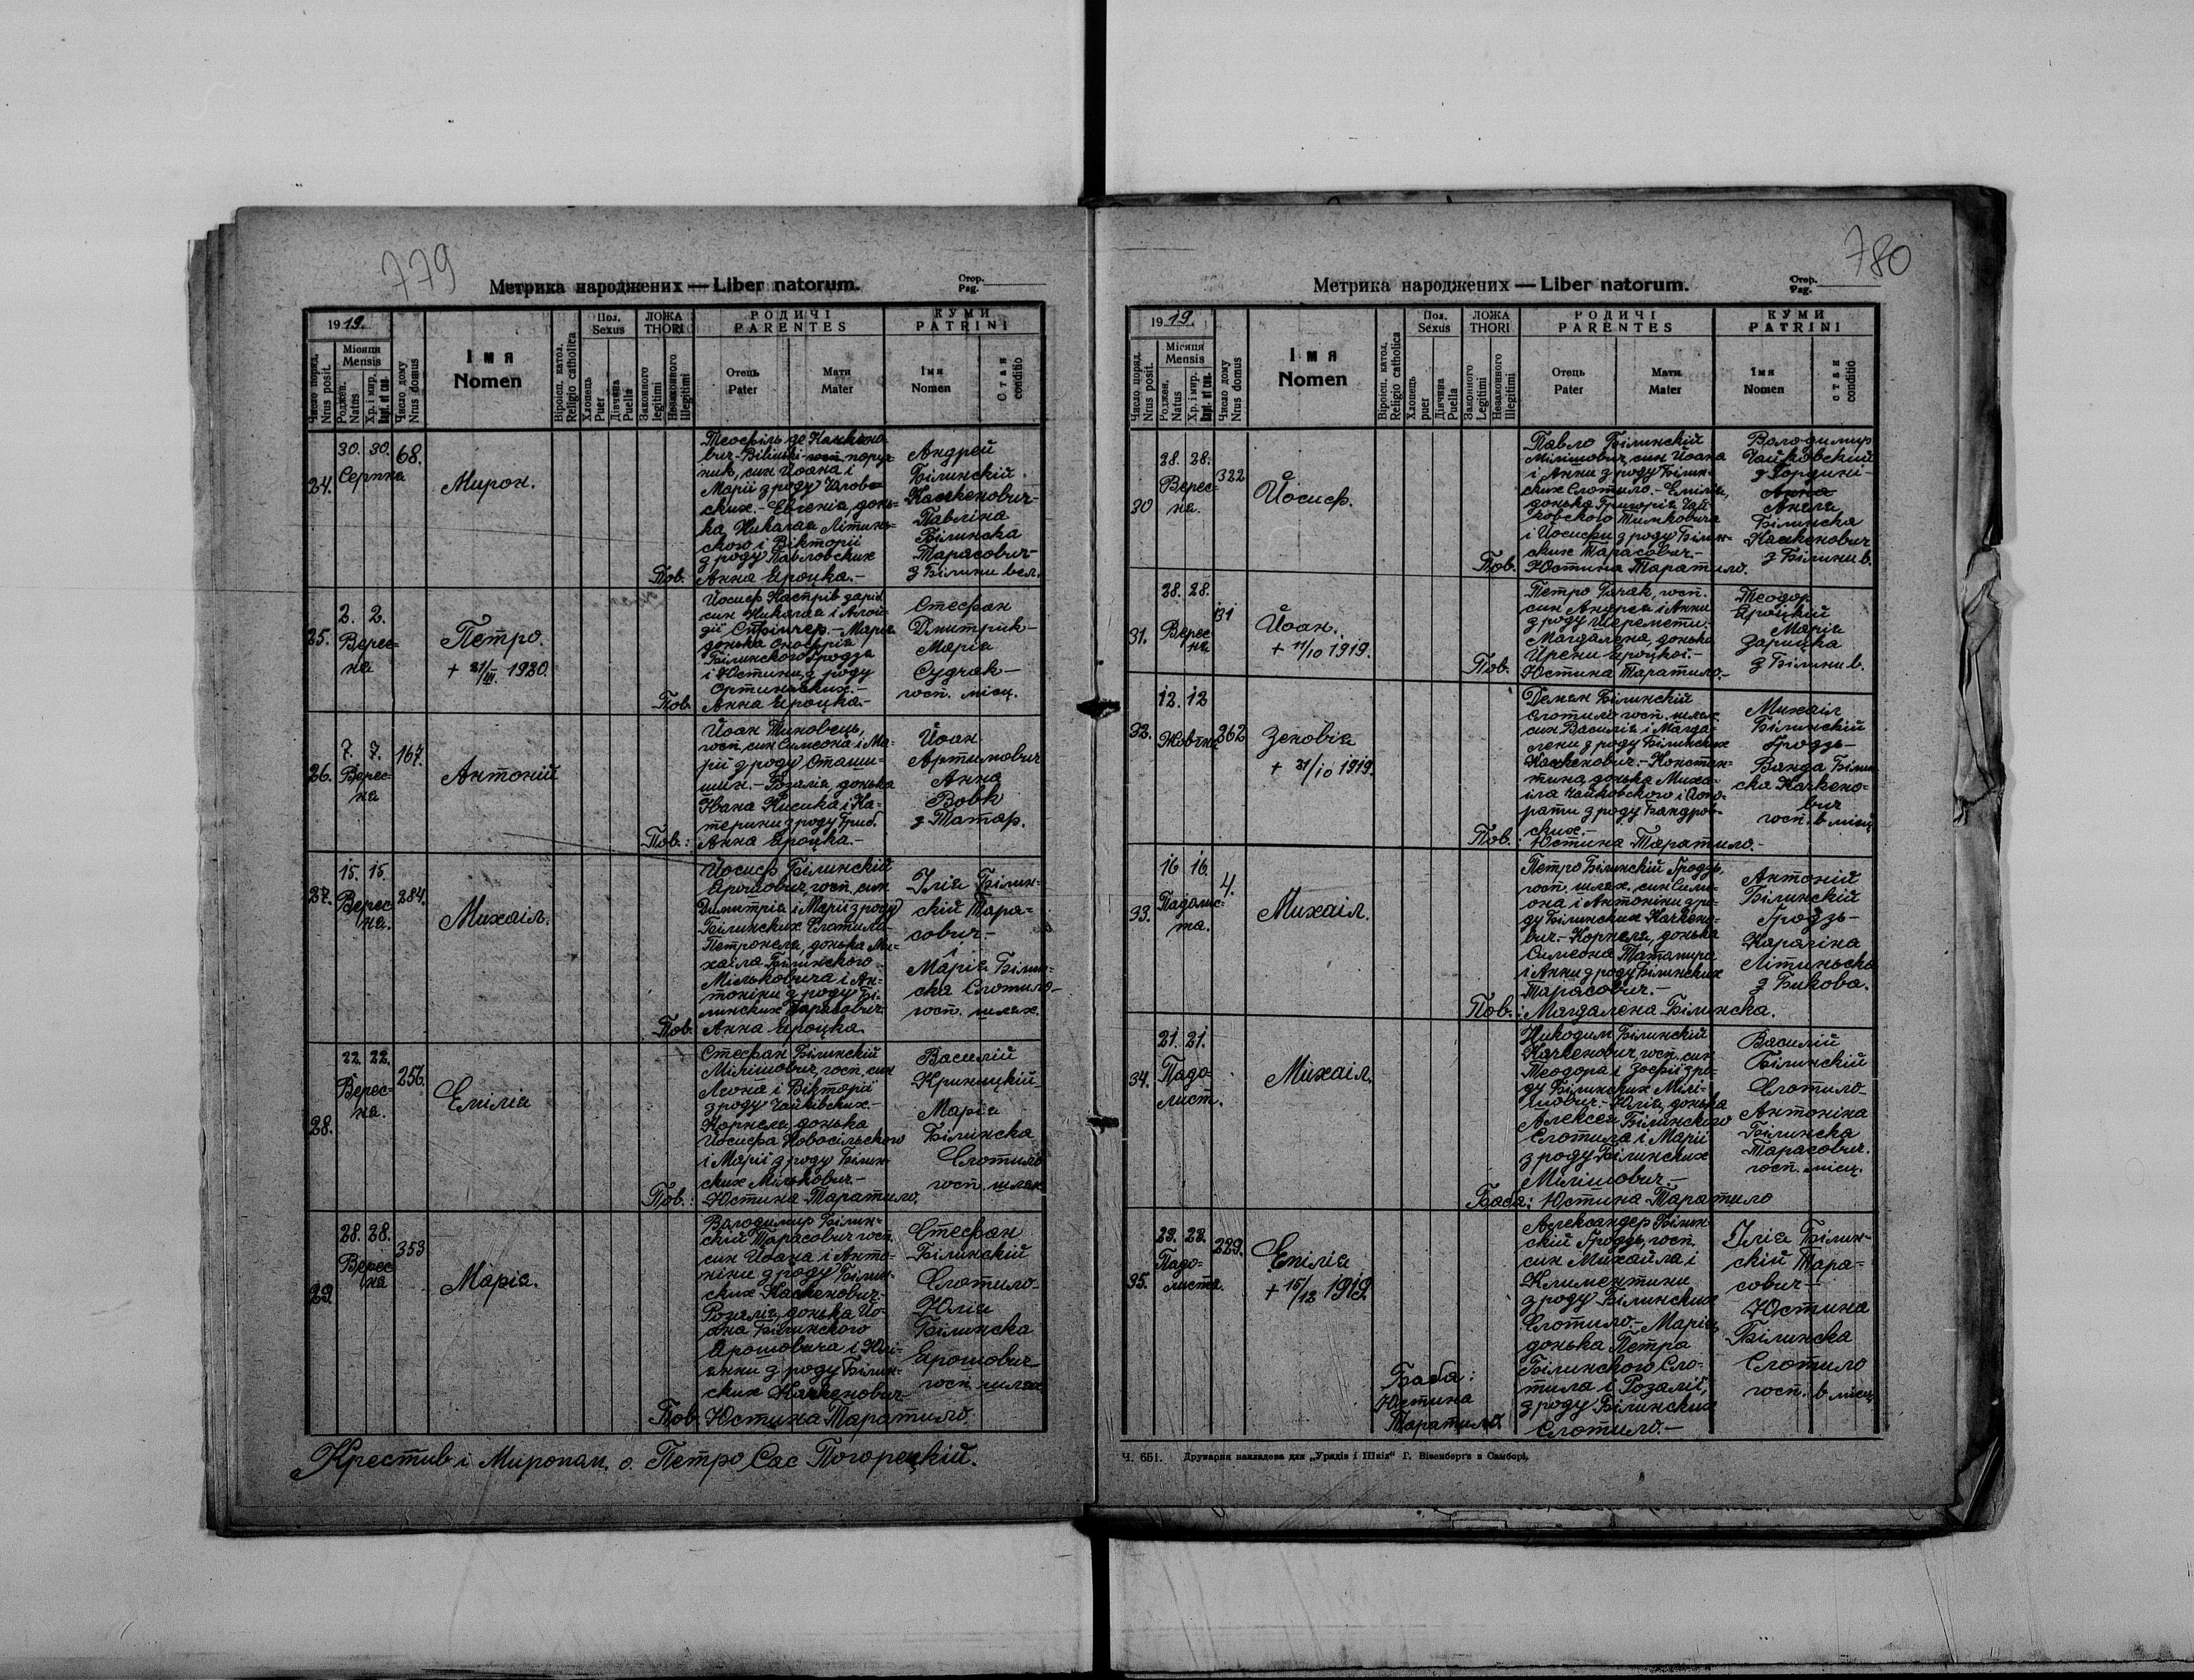 779
Метрика народжених — Liber natorum.
Стор.
Pag.
1919.
Число поряд.
Nrus posit.
Місяця
Mensis
Роджен.
Natus
Хр. і мир.
Bapt. et con.
Число дому
Nrus domus
Імя
Nomen
Віроісп. катол.
Religio catholica
Пол.
Sexus
Хлопець
Puer
Дівчина
Puella
ЛОЖА
THORI
Законного
legitimi
Незаконного
Illegitimi
РОДИЧІ
PARENTES
Отець
Pater
Мати
Mater
КУМИ
PATRINI
Імя
Nomen
Стан
conditio
24.
30. 30.
Серпня
68.
Мирон.
Теофіль де
вич-Biliński поруч
ник, син Йоана і
Марії з роду
ских. - Евгенія, донь=
ка Николая Літинь=
ского і Вікторії
з роду Павловских
Пов. Анна Яроцка.-
Андрей
Білинскій
Качкенович-
Павліна
Білинска
Тарасович-
з Білини вел.
25.
2. 2.
Верес=
ня
Петро.
+ 21/III. 1920.
Йосиф
син Николая і
дії - Марія
донька Онофрія
Білинского Гродза
і Юстини, з роду
Ортинських.-
Пов. Анна Яроцка.-
Стефан
Дмитрик-
Марія
Судчак-
госп. місц.
26.
7. 7.
Верес=
ня
167.
Антоній
Йоан Тиновець,
госп, син Симеона і Ма=
рії з роду Сташи=
шин. - Розалія, донька
Ивана Кисика і Ка=
терини з роду Гриб.
Пов.: Анна Яроцка.-
Йоан
Артимович
Анна
Вовк
з Татар.
27.
15. 15.
Верес
ня.
284.
Михаіл.
Йосиф Білинскій
Ярошович, госп, син
Димитрія і Марії з роду
Білинских Слотило-
Петронеля, донька Ми=
хаіла Білинского
Мільковича і Ан=
тоніни з роду Бі=
линских Тарасович.
Пов. Анна Яроцка.
Ілія Білин=
скій Тара=
сович.-
і
Марія Білин=
ска Слотило-
госп. шлях.
28.
22. 22.
Верес=
ня.
256.
Емілія
Стефан Білинскій
Мілішович, госп, син
Леона і Вікторії
з роду Чайківских.-
Корнеля, донька
Йосифа Новосільского
і Марії з роду Білин=
ских Мількович.-
Пов.: Юстина Таратило.
Василій
Криницкій
Марія
Білинска
Слотило
госп. шлях
29.
28. 28.
Верес
ня
353
Марія.
Володимир Білин=
скій Тарасович госп.
син Йоана і Анто=
ніни з роду Білин=
ских Качкенович.-
Розалія, донька Йо=
ана Білинского
Ярошовича і Юлі=
янни з роду Білин=
ских Качкенович-
Пов. Юстина Таратило.
Стефан
Білинскій
Слотило-
Юлія
Білинска
Ярошович-
госп. шлях
Крестив і Миропом. о. Петро Сас Погорецкій.
780
Метрика народжених — Liber natorum.
Стор.
Pag.
1919.
Число поряд.
Nrus posit.
Місяця
Mensis
Роджен.
Natus
Хр. і мир.
Bapt. et con.
Число дому
Nrus domus
Імя
Nomen
Віроісп. катол.
Religio catholica
Пол.
Sexus
Хлопець
puer
Дівчина
Puella
ЛОЖА
THORI
Законного
Legitimi
Незаконного
Illegitimi
РОДИЧІ
PARENTES
Отець
Pater
Мати
Mater
КУМИ
PATRINI
Імя
Nomen
стан
conditio
30
28. 28.
Верес=
ня.
322
Йосиф.
Павло Білинскій
Мілішович, син Йоана
і Анни з роду Білин=
ских Слотило. - Емілія,
донька Григорія Чай=
ковского Тимковича
і Йосифи з роду Білин=
ских Тарасович.-
Пов. Юстина Таратило.
Володимир
Чайковский
з Гордині-
Анна
Анеля
Білинска
Качкенович
з Білини в.
31.
28. 28.
Верес
ня
131
Йоан.
+ 11/10 1919.
Петро госп.
син Андрея і Анни
з роду Шеремети.-
Магдалена, донька
Ирени Яроцкої.-
Пов. Юстина Таратило.-
Теодор
Яроцкий
Марія
Зарицка
з Білини в.
32.
12. 12
Жовтня
262
Зеновія
+ 21/10 1919.
Демян Білинскій
Слотило госп. шлях.
син Василія і Магда=
лени з роду Білинских
Качкенович. - Констан=
тина, донька Миха=
іла Чайковского і Гоно=
рати з роду Бандров=
ских.-
Пов.: Юстина Таратило.-
Михаіл
Білинскій
Гродзь-
Ванда Білин
ска Качкено=
вич
госп. в місц
33.
16 16.
Падолис=
та.
4.
Михаіл.
Петро Білинскій Гродзь,
госп. шлях. син Симе=
она і Антоніни з ро=
ду Білинских Качкено=
вич. - Корнеля, донька
Симеона Татомира
і Анни з роду Білинских
Тарасович.-
Пов.: Магдалена Білинска.
Антоній
Білинскій
Гродзь-
Кароліна
Літиньска
з Бикова.
34.
21. 21.
Падо=
лист.
Михаіл.
Никодим Білинскій
Качкенович, госп. син
Теодора і Зофії з ро=
ду Білинских Мілі=
шович. - Юлія, донька
Алексея Білинского
Слотила і Марії
з роду Білинских
Мілішович.-
Баба: Юстина Таратило
Василій
Білинскій
Слотило-
Антоніна
Білинска
Тарасович.
госп. місц.
35.
23. 23.
Падо=
листа.
229.
Емілія
+ 15/12 1919.
Баба:
Юстина
Таратило
Александер Білин=
скій Гродзь, госп.
син Михайла і
Климентини
з роду Білинских
Слотило. - Марія,
донька Петра
Білинского Сло=
тила і Розалії,
з роду Білинских
Слотило.-
Ілія Білин-
скій Тара=
сович-
Юстина
Білинска
Слотило
госп. в місц
Ч. 651. Друкарня накладова для „Урядів і Шкіл" Г. Візенберґа в Самборі.